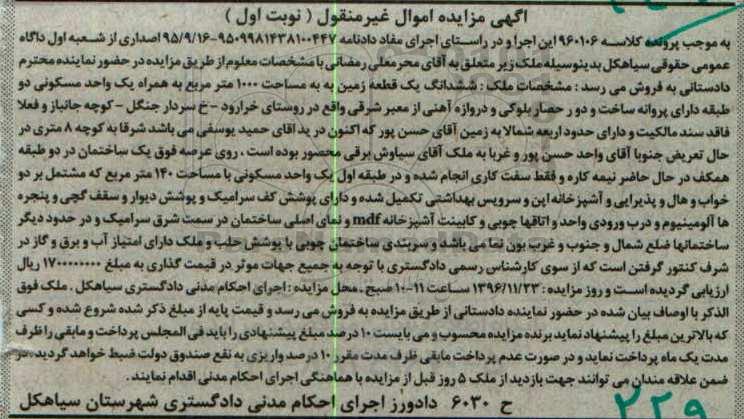 آگهی مزایده اموال غیرمنقول ( نوبت اول )
به موجب پرونده کلاسه ۹۶۰۱۰۶ این اجرا و در راستای اجرای مفاد دادنامه ۹۵۰۹۹۸۱۴۳۸۱۰۰۴۴۷-۹۵/۹/۱۶ اصداری از شعبه اول دادگاه
عمومی حقوقی سیاهکل بدینوسیله ملک زیر متعلق به آقای محرمعلی رمضانی با مشخصات معلوم از طریق مزایده در حضور نماینده محترم
دادستانی به فروش می رسد : مشخصات ملک : ششدانگ یک قطعه زمین به به مساحت ۱۰۰۰ متر مربع به همراه یک واحد مسکونی دو
طبقه دارای پروانه ساخت و دور حصار بلوکی و دروازه آهنی از معبر شرقی واقع در روستای خرارود - خ سردار جنگل - کوچه جانباز و فعلا
فاقد سند مالکیت و دارای حدود اربعه شمالا به زمین آقای حسن پور که اکنون در ید آقای حمید یوسفی می باشد شرقا به کوچه ۸ متری در
حال تعریض جنوبا آقای واحد حسن پور و غربا به ملک آقای سیاوش برقی محصور بوده است ، روی عرصه فوق یک ساختمان در دو طبقه
همکف در حال حاضر نیمه کاره و فقط سفت کاری انجام شده و در طبقه اول یک واحد مسکونی با مساحت ۱۴۰ متر مربع که مشتمل بر دو
خواب و هال و پذیرایی و آشپزخانه اپن و سرویس بهداشتی تکمیل شده و دارای پوشش کف سرامیک و پوشش دیوار و سقف گچی و پنجره
ها آلومینیوم و درب ورودی واحد و اتاقها چوبی و کابینت آشپزخانه mdf و نمای اصلی ساختمان در سمت شرق سرامیک و در حدود دیگر
ساختمانها ضلع شمال و جنوب و غرب بون نما می باشد و سربندی ساختمان چوبی با پوشش حلب و ملک دارای امتیاز آب و برق و گاز در
شرف کنتور گرفتن است که از سوی کارشناس رسمی دادگستری با توجه به جمیع جهات موثر در قیمت گذاری به مبلغ ۱۷۰۰۰۰۰۰۰۰ ریال
ارزیابی گردیده است و روز مزایده : ۱۳۹۶/۱۱/۲۳ ساعت ۱۱-۱۰ صبح . محل مزایده : اجرای احکام مدنی دادگستری سیاهکل . ملک فوق
الذکر با اوصاف بیان شده در حضور نماینده دادستانی از طریق مزایده به فروش می رسد و قیمت پایه از مبلغ ذکر شده شروع شده و کسی
که بالاترین مبلغ را پیشنهاد نماید برنده مزایده محسوب و می بایست ۱۰ درصد مبلغ پیشنهادی را باید فی المجلس پرداخت و مابقی را ظرف
مدت یک ماه پرداخت نماید و در صورت عدم پرداخت مابقی ظرف مدت مقرر ۱۰ درصد واریزی به نفع صندوق دولت ضبط خواهد گردید. در
ضمن علاقه مندان می توانند جهت بازدید از ملک ۵ روز قبل از مزایده با هماهنگی اجرای احکام مدنی اقدام نمایند.
ح ۶۰۳۰ دادورز اجرای احکام مدنی دادگستری شهرستان سیاهکل
۲۲۹